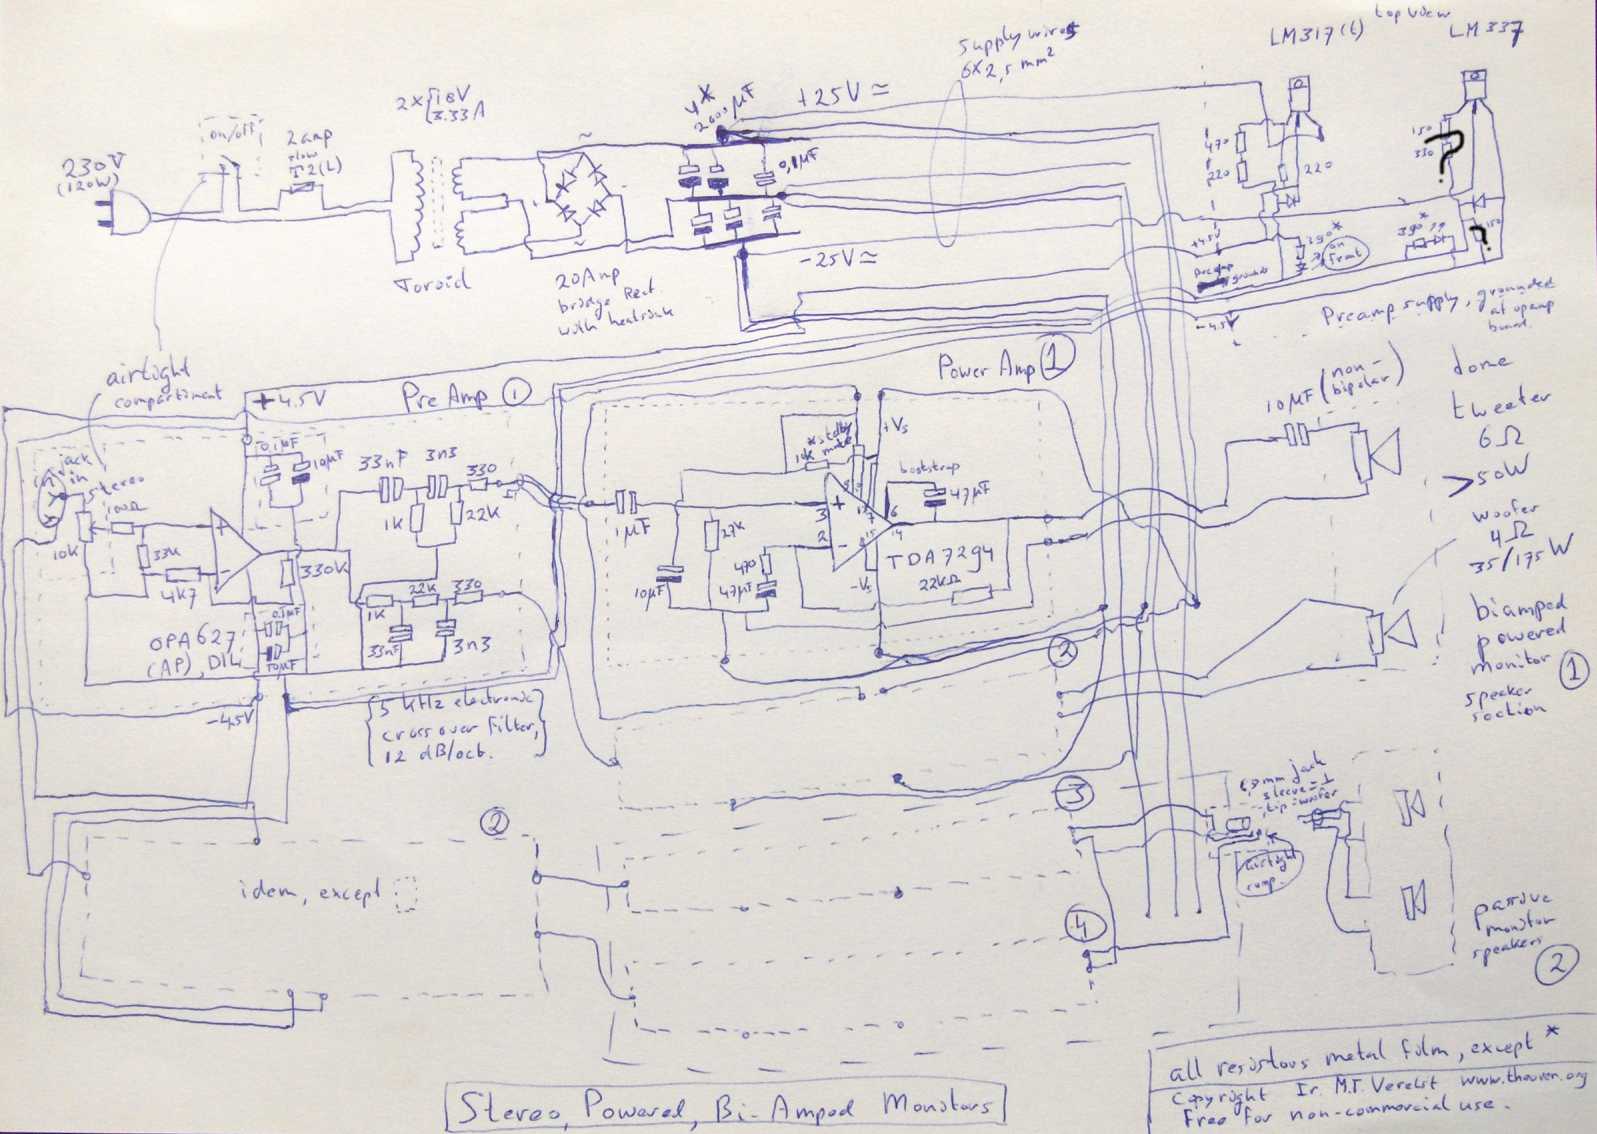 top view
LM317(L)
LM337
supply wires
6x2,5 mm²
2x{18V
3.33A
4*
2000µF
+25V ≃
on/off
2amp
slow
T2(L)
230V
(120W)
0,1µF
470
220
220
150
330
?
-25V ≃
+4.5V
390*
on
front
390*
150
?
preamp
ground
Toroid
20Amp
bridge Rect.
with heatsink
-4.5V
Preamp supply, grounded
at opamp
board.
airtight
compartment
+4.5V
PreAmp 1
Power Amp 1
10µF (non-
bipolar)
dome
tweeter
6Ω
>50W
woofer
4Ω
35/175W
biamped
powered
monitor
speaker
section
1
jack
in
stereo
100Ω
10k
33k
4k7
0.1µF
10µF
330k
33nF
3n3
330
1k
22k
1k
22k
330
33nF
3n3
OPA627
(AP), DIL
0.1µF
10µF
-4.5V
{5 kHz electronic
cross over filter,
12 dB/oct.}
1µF
10µF
27k
470
47µF
*stdby
mute
10k
+Vs
bootstrap
47µF
+
3
2
-
7
6
14
15
8
-Vs
TDA7294
22kΩ
2
3
4
2
idem, except
mm jack
sleeve=⊥
tip=woofer
airtight
comp.
passive
monitor
speakers
2
all resistors metal film, except *
Copyright Ir. M.T. Verelst www.theover.org
Free for non-commercial use.
Stereo, Powered, Bi-Amped Monitors